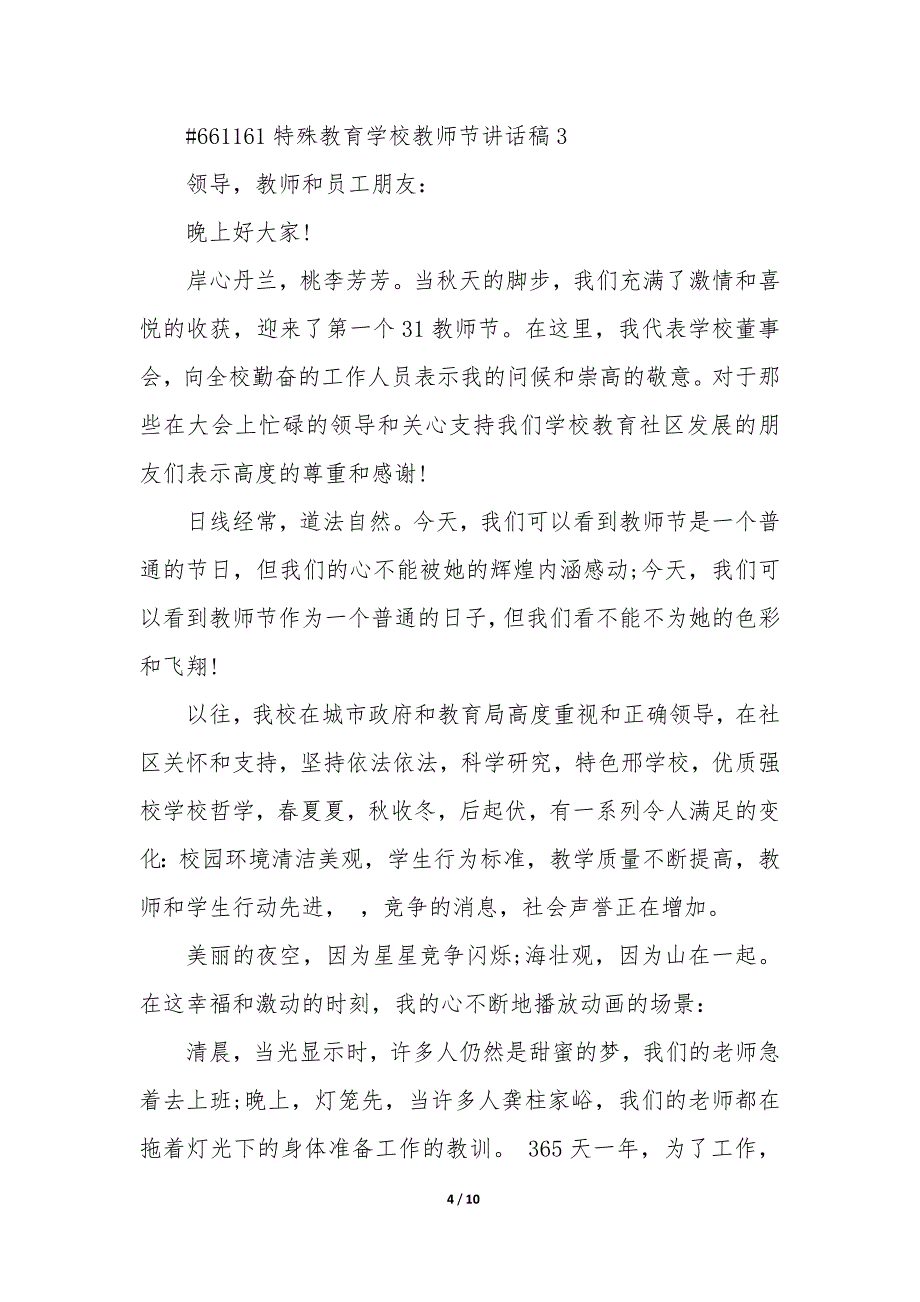 #661161 特殊教育学校教师节讲话稿 3
领导，教师和员工朋友：
晚上好大家!
岸心丹兰，桃李芳芳。当秋天的脚步，我们充满了激情和喜
悦的收获，迎来了第一个 31 教师节。在这里，我代表学校董事
会，向全校勤奋的工作人员表示我的问候和崇高的敬意。对于那
些在大会上忙碌的领导和关心支持我们学校教育社区发展的朋
友们表示高度的尊重和感谢!
日线经常，道法自然。今天，我们可以看到教师节是一个普
通的节日，但我们的心不能被她的辉煌内涵感动;今天，我们可
以看到教师节作为一个普通的日子，但我们看不能不为她的色彩
和飞翔!
以往，我校在城市政府和教育局高度重视和正确领导，在社
区关怀和支持，坚持依法依法，科学研究，特色邢学校，优质强
校学校哲学，春夏夏，秋收冬，后起伏，有一系列令人满足的变
化：校园环境清洁美观，学生行为标准，教学质量不断提高，教
师和学生行动先进， ，竞争的消息，社会声誉正在增加。
美丽的夜空，因为星星竞争闪烁;海壮观，因为山在一起。
在这幸福和激动的时刻，我的心不断地播放动画的场景：
清晨，当光显示时，许多人仍然是甜蜜的梦，我们的老师急
着去上班;晚上，灯笼先，当许多人龚柱家峪，我们的老师都在
拖着灯光下的身体准备工作的教训。 365 天一年，为了工作，
4 / 10